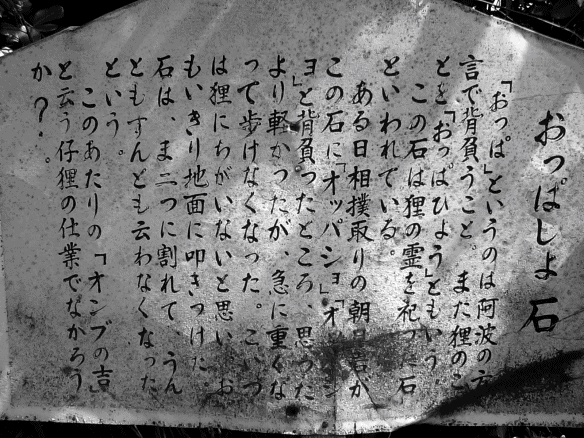 おっぱしよ石
「おっぱ」というのは阿波の方
言で背負うこと。また狸のこ
とを「おっぱひょう」ともいう。
この石は狸の霊を祀った石
といわれている。
ある日相撲取りの朝日岩が
この石に「オッパショ」「オッパシ
ョ」と背負ったところ、思った
より軽かったが、急に重くな
って歩けなくなった。こいつ
は狸にちがいないと思い、お
もいきり地面に叩きつけた。
石は、ま二つに割れて、うん
ともすんとも云わなくなった
という。
このあたりの「オンブの吉」
と云う仔狸の仕業でながろう
か?。